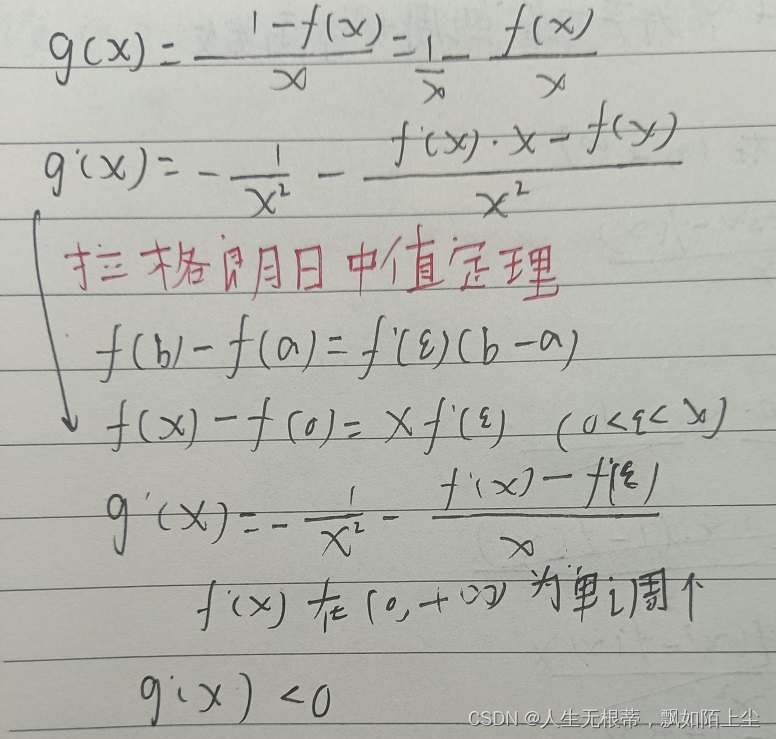 g(x) = (1-f(x))/x = 1/x - f(x)/x
g'(x) = - 1/x² - (f'(x)·x - f(x))/x²
拉格朗日中值定理
f(b) - f(a) = f'(ε)(b-a)
f(x) - f(0) = x f'(ε) (0<ε<x)
g'(x) = - 1/x² - (f'(x) - f'(ε))/x
f'(x) 在 (0,+∞) 为单调个
g'(x) <0
CSDN @人生无根蒂，飘如陌上尘